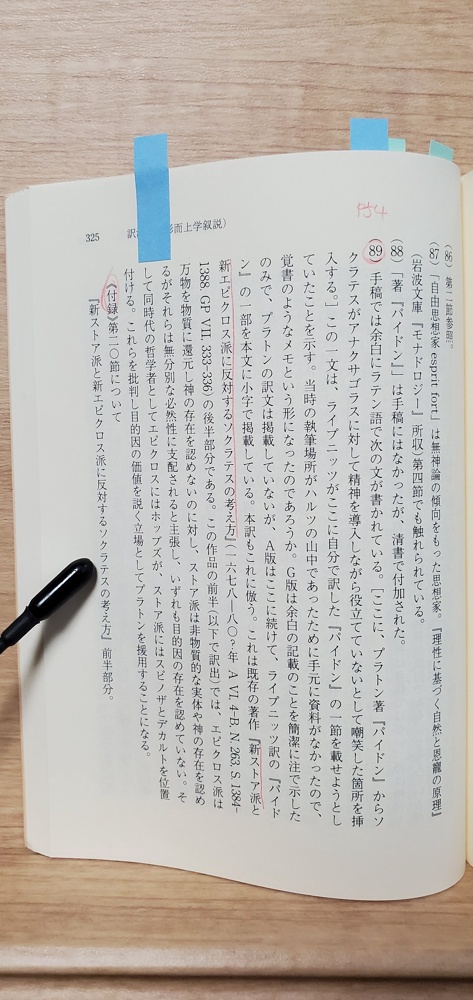 (86) 第二一節参照。
(87) 「自由思想家 esprit fort」は無神論の傾向をもった思想家。『理性に基づく自然と恩寵の原理』
(岩波文庫『モナドロジー』所収)第四節でも触れられている。
(88) 「著『パイドン』」は手稿にはなかったが、清書で付加された。
(89) 手稿では余白にラテン語で次の文が書かれている。[ここに、プラトン著『パイドン』からソ
クラテスがアナクサゴラスに対して精神を導入しながら役立てていないとして嘲笑した箇所を挿
入する。]この一文は、ライプニッツがここに自分で訳した『パイドン』の一節を載せようとし
ていたことを示す。当時の執筆場所がハルツの山中であったために手元に資料がなかったので、
覚書のようなメモという形になったのであろうか。G版は余白の記載のことを簡潔に注で示した
のみで、プラトンの訳文は掲載していないが、A版はここに続けて、ライプニッツ訳の『パイド
ン』の一部を本文に小字で掲載している。本訳もこれに倣う。これは既存の著作『新ストア派と
新エピクロス派に反対するソクラテスの考え方』(一六七八―八〇?年 A VI, 4-B, N. 263, S. 1384-
1388, GP VII, 333-336)の後半部分である。この作品の前半(以下で訳出)では、エピクロス派は
万物を物質に還元し神の存在を認めないのに対し、ストア派は非物質的な実体や神の存在を認め
るがそれらは無分別な必然性に支配されると主張し、いずれも目的因の存在を認めていない。そ
して同時代の哲学者としてエピクロスにはホッブズが、ストア派にはスピノザとデカルトを位置
付ける。これらを批判し目的因の価値を説く立場としてプラトンを援用することになる。
《付録》第二〇節について
『新ストア派と新エピクロス派に反対するソクラテスの考え方』前半部分。
訳 形而上学叙説)
325